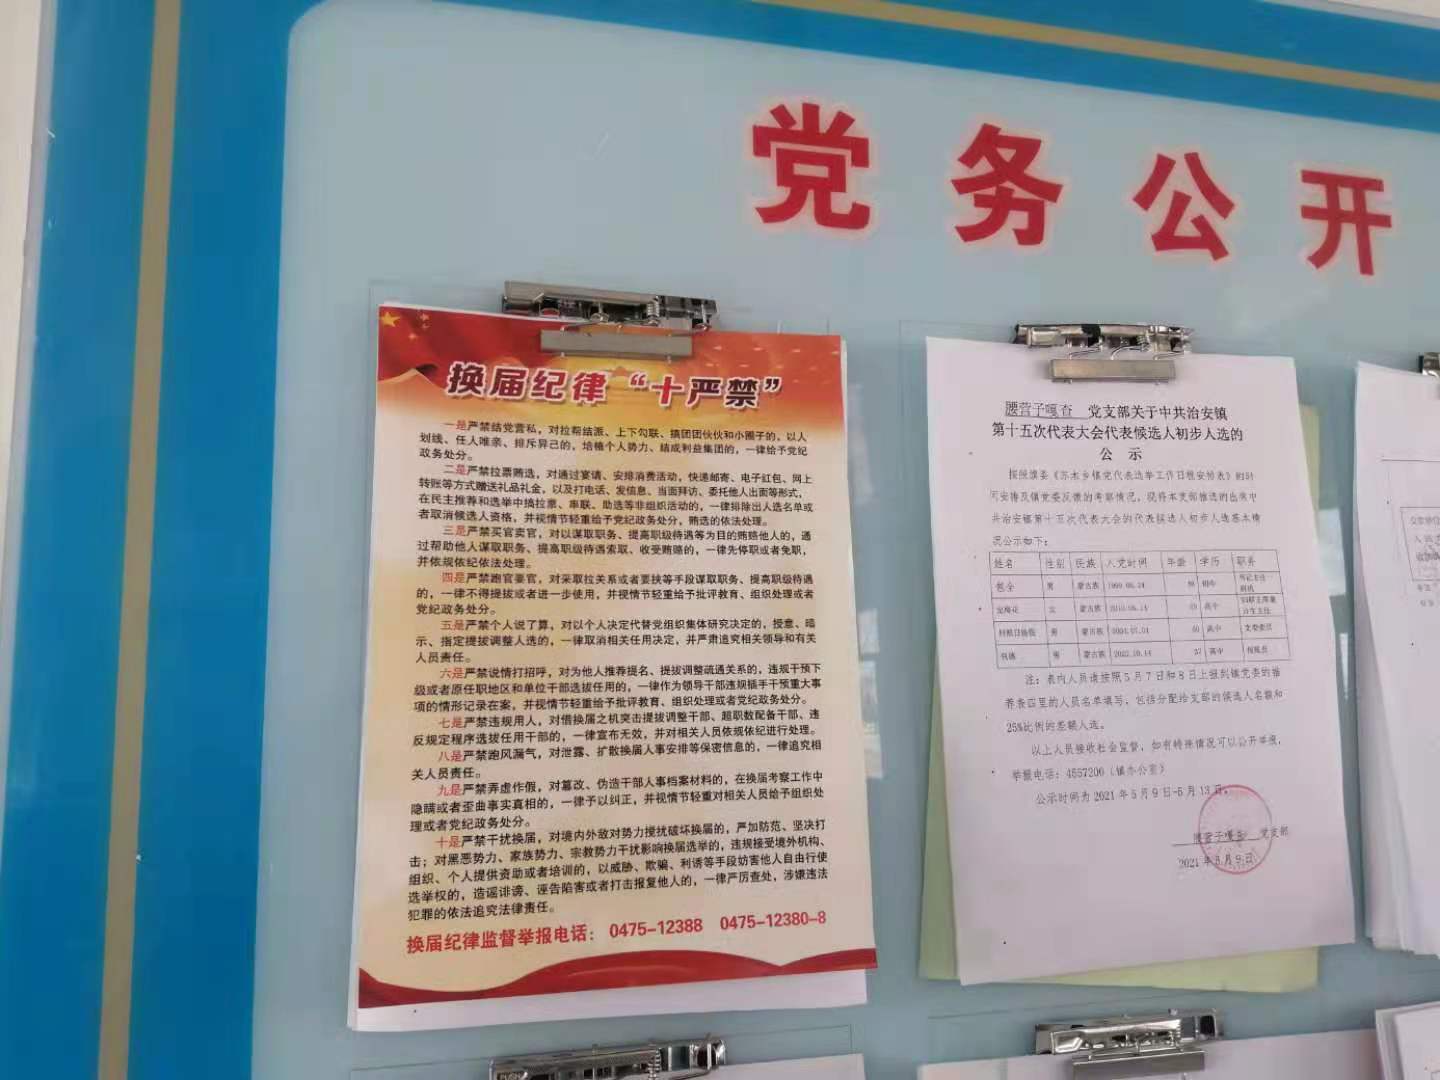 党务公开
换届纪律“十严禁”
一是严禁结党营私，对拉帮结派、上下勾联、搞团团伙伙和小圈子的，以人
划线、任人唯亲、排斥异己的，培植个人势力、结成利益集团的，一律给予党纪
政务处分。
二是严禁拉票贿选，对通过宴请、安排消费活动，快递邮寄、电子红包、网上
转账等方式赠送礼品礼金，以及打电话、发信息、当面拜访、委托他人出面等形式，
在民主推荐和选举中搞拉票、串联、助选等非组织活动的，一律排除出人选名单或
者取消候选人资格，并视情节轻重给予党纪政务处分，贿选的依法处理。
三是严禁买官卖官，对以谋取职务、提高职级待遇等为目的贿赂他人的，通
过帮助他人谋取职务、提高职级待遇索取、收受贿赂的，一律先停职或者免职，
并依规依纪依法处理。
四是严禁跑官要官，对采取拉关系或者要挟等手段谋取职务、提高职级待遇
的，一律不得提拔或者进一步使用，并视情节轻重给予批评教育、组织处理或者
党纪政务处分。
五是严禁个人说了算，对以个人决定代替党组织集体研究决定的，授意、暗
示、指定提拔调整人选的，一律取消相关任用决定，并严肃追究相关领导和有关
人员责任。
六是严禁说情打招呼，对为他人推荐提名、提拔调整疏通关系的，违规干预下
级或者原任职地区和单位干部选拔任用的，一律作为领导干部违规插手干预重大事
项的情形记录在案，并视情节轻重给予批评教育、组织处理或者党纪政务处分。
七是严禁违规用人，对借换届之机突击提拔调整干部、超职数配备干部、违
反规定程序选拔任用干部的，一律宣布无效，并对相关人员依规依纪进行处理。
八是严禁跑风漏气，对泄露、扩散换届人事安排等保密信息的，一律追究相
关人员责任。
九是严禁弄虚作假，对篡改、伪造干部人事档案材料的，在换届考察工作中
隐瞒或者歪曲事实真相的，一律予以纠正，并视情节轻重对相关人员给予组织处
理或者党纪政务处分。
十是严禁干扰换届，对境内外敌对势力搅扰破坏换届的，严加防范、坚决打
击；对黑恶势力、家族势力、宗教势力干扰影响换届选举的，违规接受境外机构、
组织、个人提供资助或者培训的，以威胁、欺骗、利诱等手段妨害他人自由行使
选举权的，造谣诽谤、诬告陷害或者打击报复他人的，一律严厉查处，涉嫌违法
犯罪的依法追究法律责任。
换届纪律监督举报电话： 0475-12388 0475-12380-8
腰营子嘎查 党支部关于中共治安镇
第十五次代表大会代表候选人初步人选的
公 示
按照旗委《苏木乡镇党代表选举工作日程安排表》的时
间安排及镇党委反馈的考察情况，现将本支部推选的出席中
共治安镇第十五次代表大会的代表候选人初步人选基本情
况公示如下：
姓名 性别 民族 入党时间 年龄 学历 职务
包全 男 蒙古族 初中
女 蒙古族 高中
男 蒙古族 高中
男 蒙古族 高中
注：表内人员请按照5月7日和8日上报到镇党委的推
荐表四里的人员名单填写，包括分配给支部的候选人名额和
25%比例的差额人选。
以上人员接收社会监督，如有特殊情况可以公开举报，
举报电话：4557200（镇办公室）
公示时间为2021年5月9日-5月13日。
腰营子嘎查 党支部
2021年5月9日
PUSH